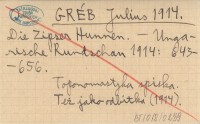 GRÉB Julius 1914.
Die Zipser Hunnen. — Unga-
rische Rundschau 1914: 645-
-656.
Toponomastyka spiska.
Też jako odbitka (1914).